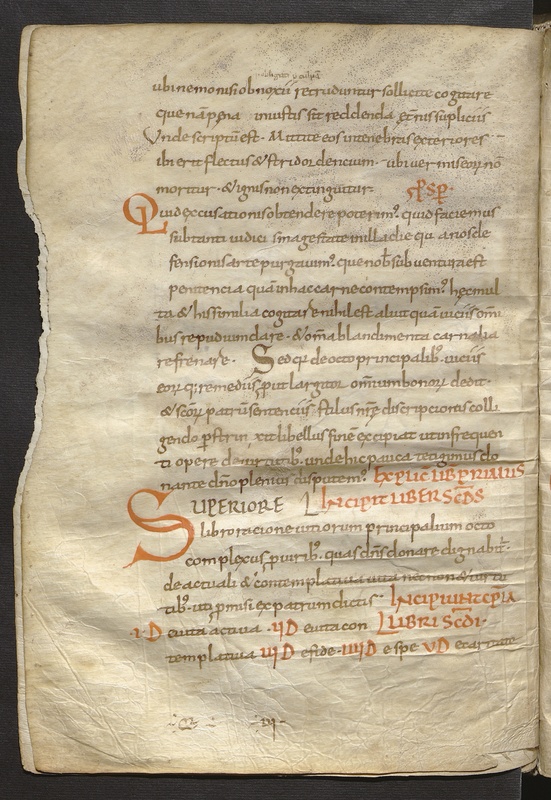 ubi nemo nisi obnoxii retruduntur sollicite cogitare
que nā pena iniustis sit reddenda &
Unde scriptū est. Mittite eos in tenebras exteriores
ibi erit fletus & stridor dencium. ubi uermis eorū nō
moritur. & ignis non extinguitur.
Quid excusationis obtendere poterim⁹. quid faciemus
sub tanti iudici
fensionis arte
penitencia quā in hac carne contempsim⁹. hęc mul
ta & his similia cogitare nihil est aliut quā uiciis omī
bus repudium dare. & om̄a blandimenta carnalia
refrenare. Sed q̄ de octo principalib⁹ uiciis
eorū q; remediis put largitor omnium bonorū dedit.
& sc̄orū patrū sentenciis stilus nr̄e discripcionis colli
gendo
ti opere de uirtutib⁹. unde hic pauca tetigimus do
nante dn̄o plenius disputem⁹. Explic̄ liber primus
SUPERIORE Incipit liber sc̄ds
libro racione uitiorum principalium octo
complexus p uirib⁹. quas dn̄s donare dignabit̄.
de actuali & contemplatiua uita necnon & uirtu
tib⁹. uti p̄misi ex patrum dictis. Incipiunt cp̄la
.I. De uita actiua. II De uita con LIBRI SC̄DI.
templatiua III De fide. IIII De spe V De caritate